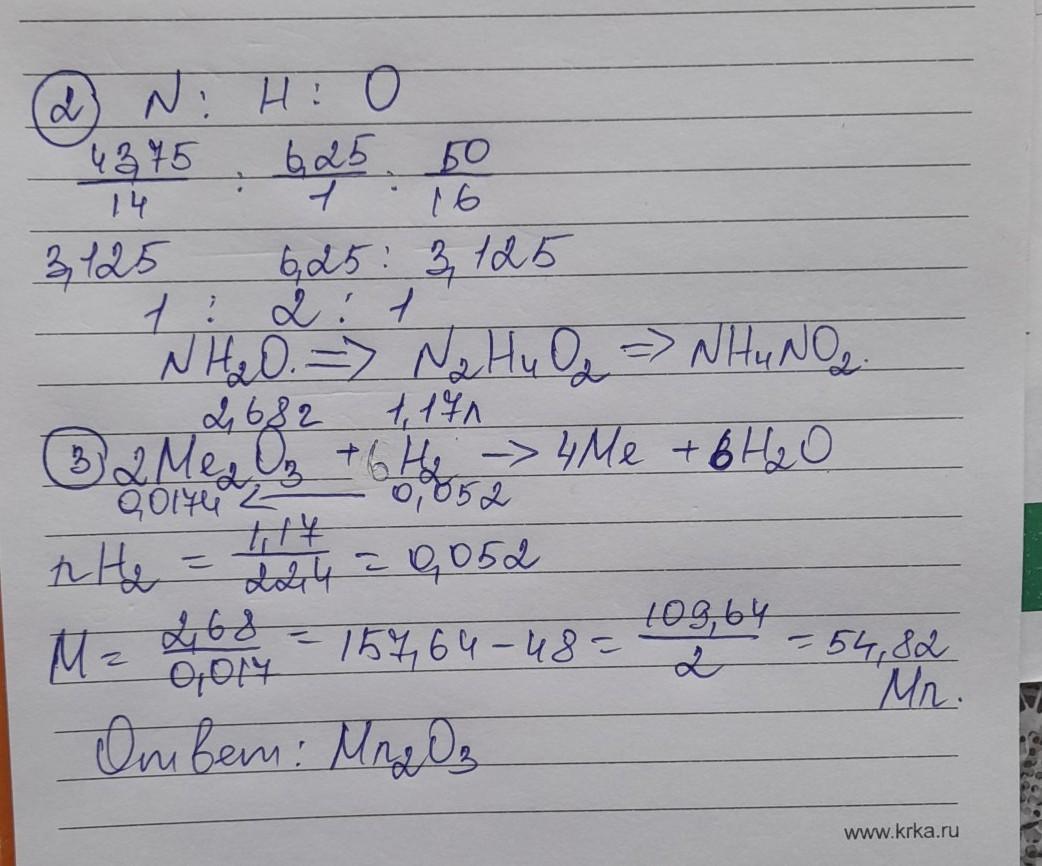 2 N : H : O
43,75/14 : 6,25/1 : 50/16
3,125 6,25 : 3,125
1 : 2 : 1
NH2O. => N2H4O2 => NH4NO2.
2,68г 1,17л
3 2Me2O3 + 6H2 -> 4Me + 6H2O
0,0174 <— 0,052
nH2 = 1,17/22,4 = 0,052
M = 2,68/0,017 = 157,64 - 48 = 109,64/2 = 54,82
Mn.
Ответ: Mn2O3
www.krka.ru